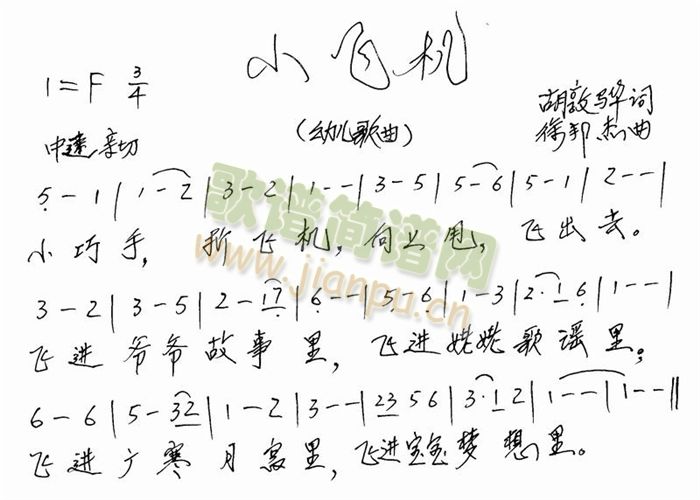 小飞机
1=F 3/4
(幼儿歌曲)
胡敦骅词
中速 亲切
徐邦杰曲
5 - 1 | 1 - 2 | 3 - 2 | 1 - - | 3 - 5 | 5 - 6 | 5 - 1 | 2 - - |
小巧手, 折飞机, 向上甩, 飞出去。
3 - 2 | 3 - 5 | 2 - 17 | 6 - - | 5 - 6 | 1 - 3 | 2 · 1 6 | 1 - - |
飞进爷爷故事里, 飞进姥姥歌谣里;
6 - 6 | 5 - 32 | 1 - 2 | 3 - - | 23 5 6 | 3 · 1 2 | 1 - - | 1 - - ‖
飞进广寒月宫里, 飞进宝宝梦想里。
歌谱简谱网
www.jianpu.cn